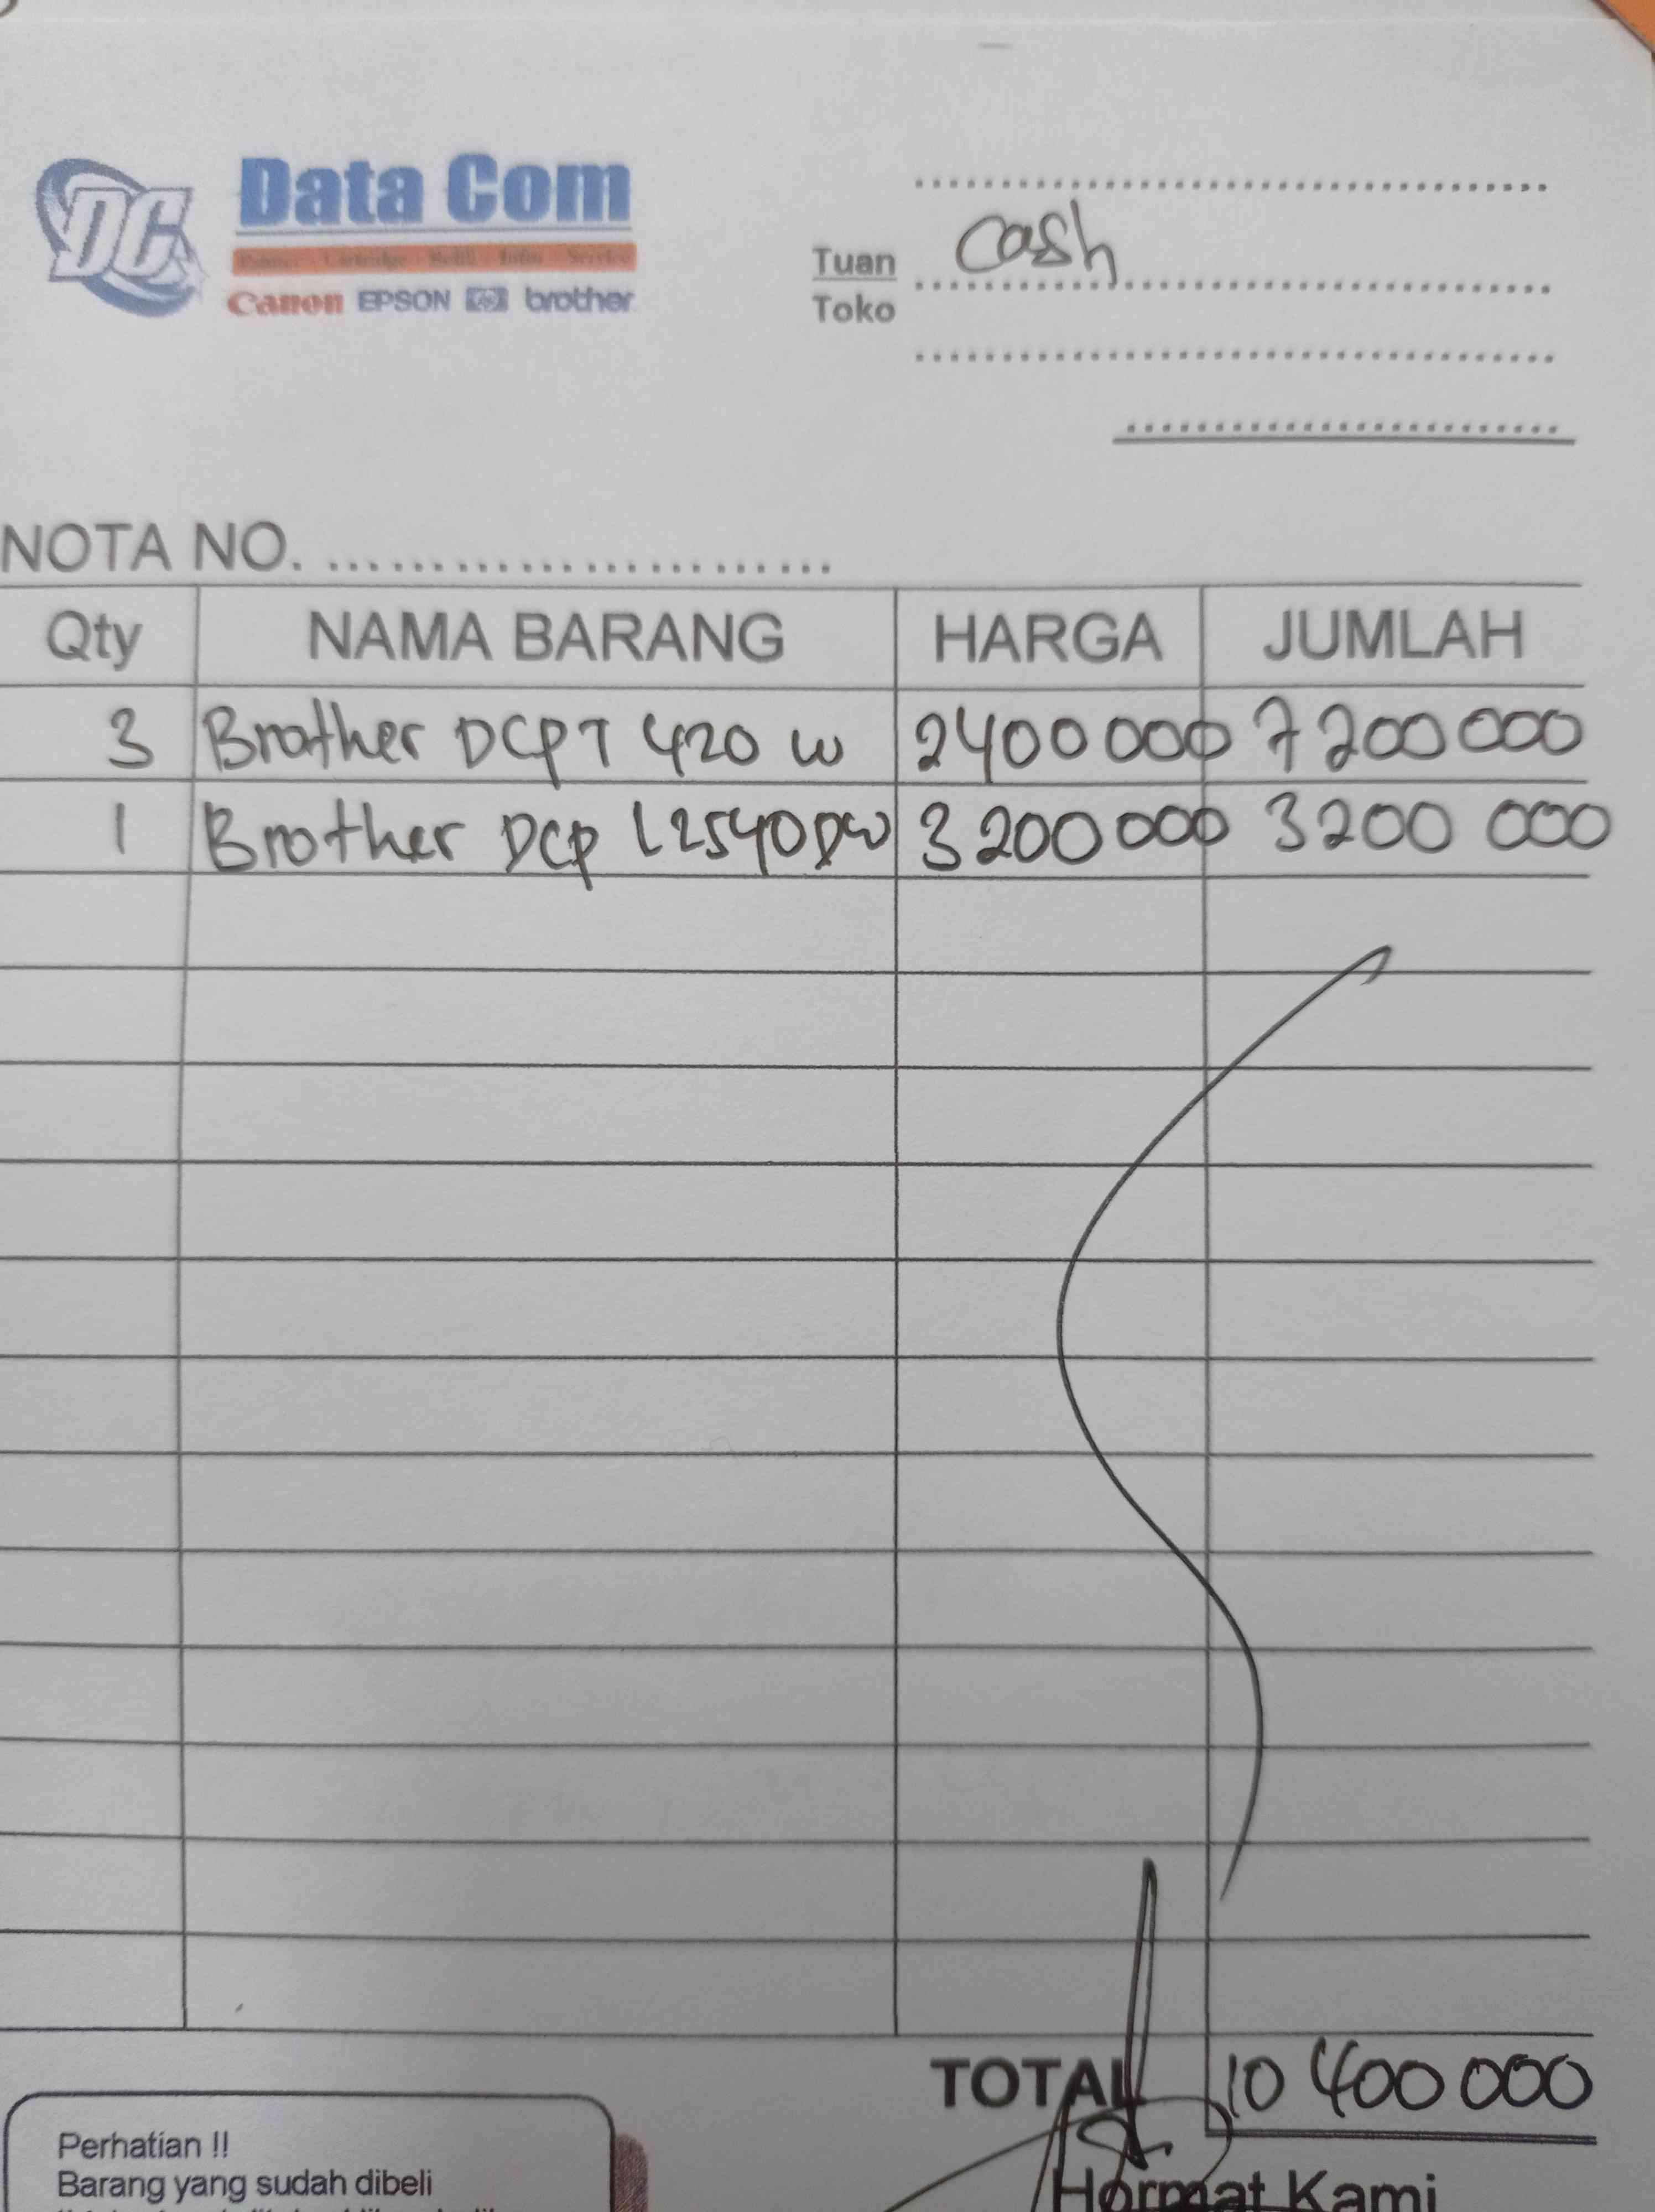 DC Data Com
Printer - Cartridge - Refill - Infus - Service
Canon EPSON hp brother
Tuan Cash
Toko
NOTA NO.
Qty NAMA BARANG HARGA JUMLAH
3 Brother DCPT 420 W 2400 000 7 200 000
1 Brother DCP L2540DW 3 200 000 3200 000
TOTAL 10 400 000
Perhatian !!
Barang yang sudah dibeli
Hormat Kami